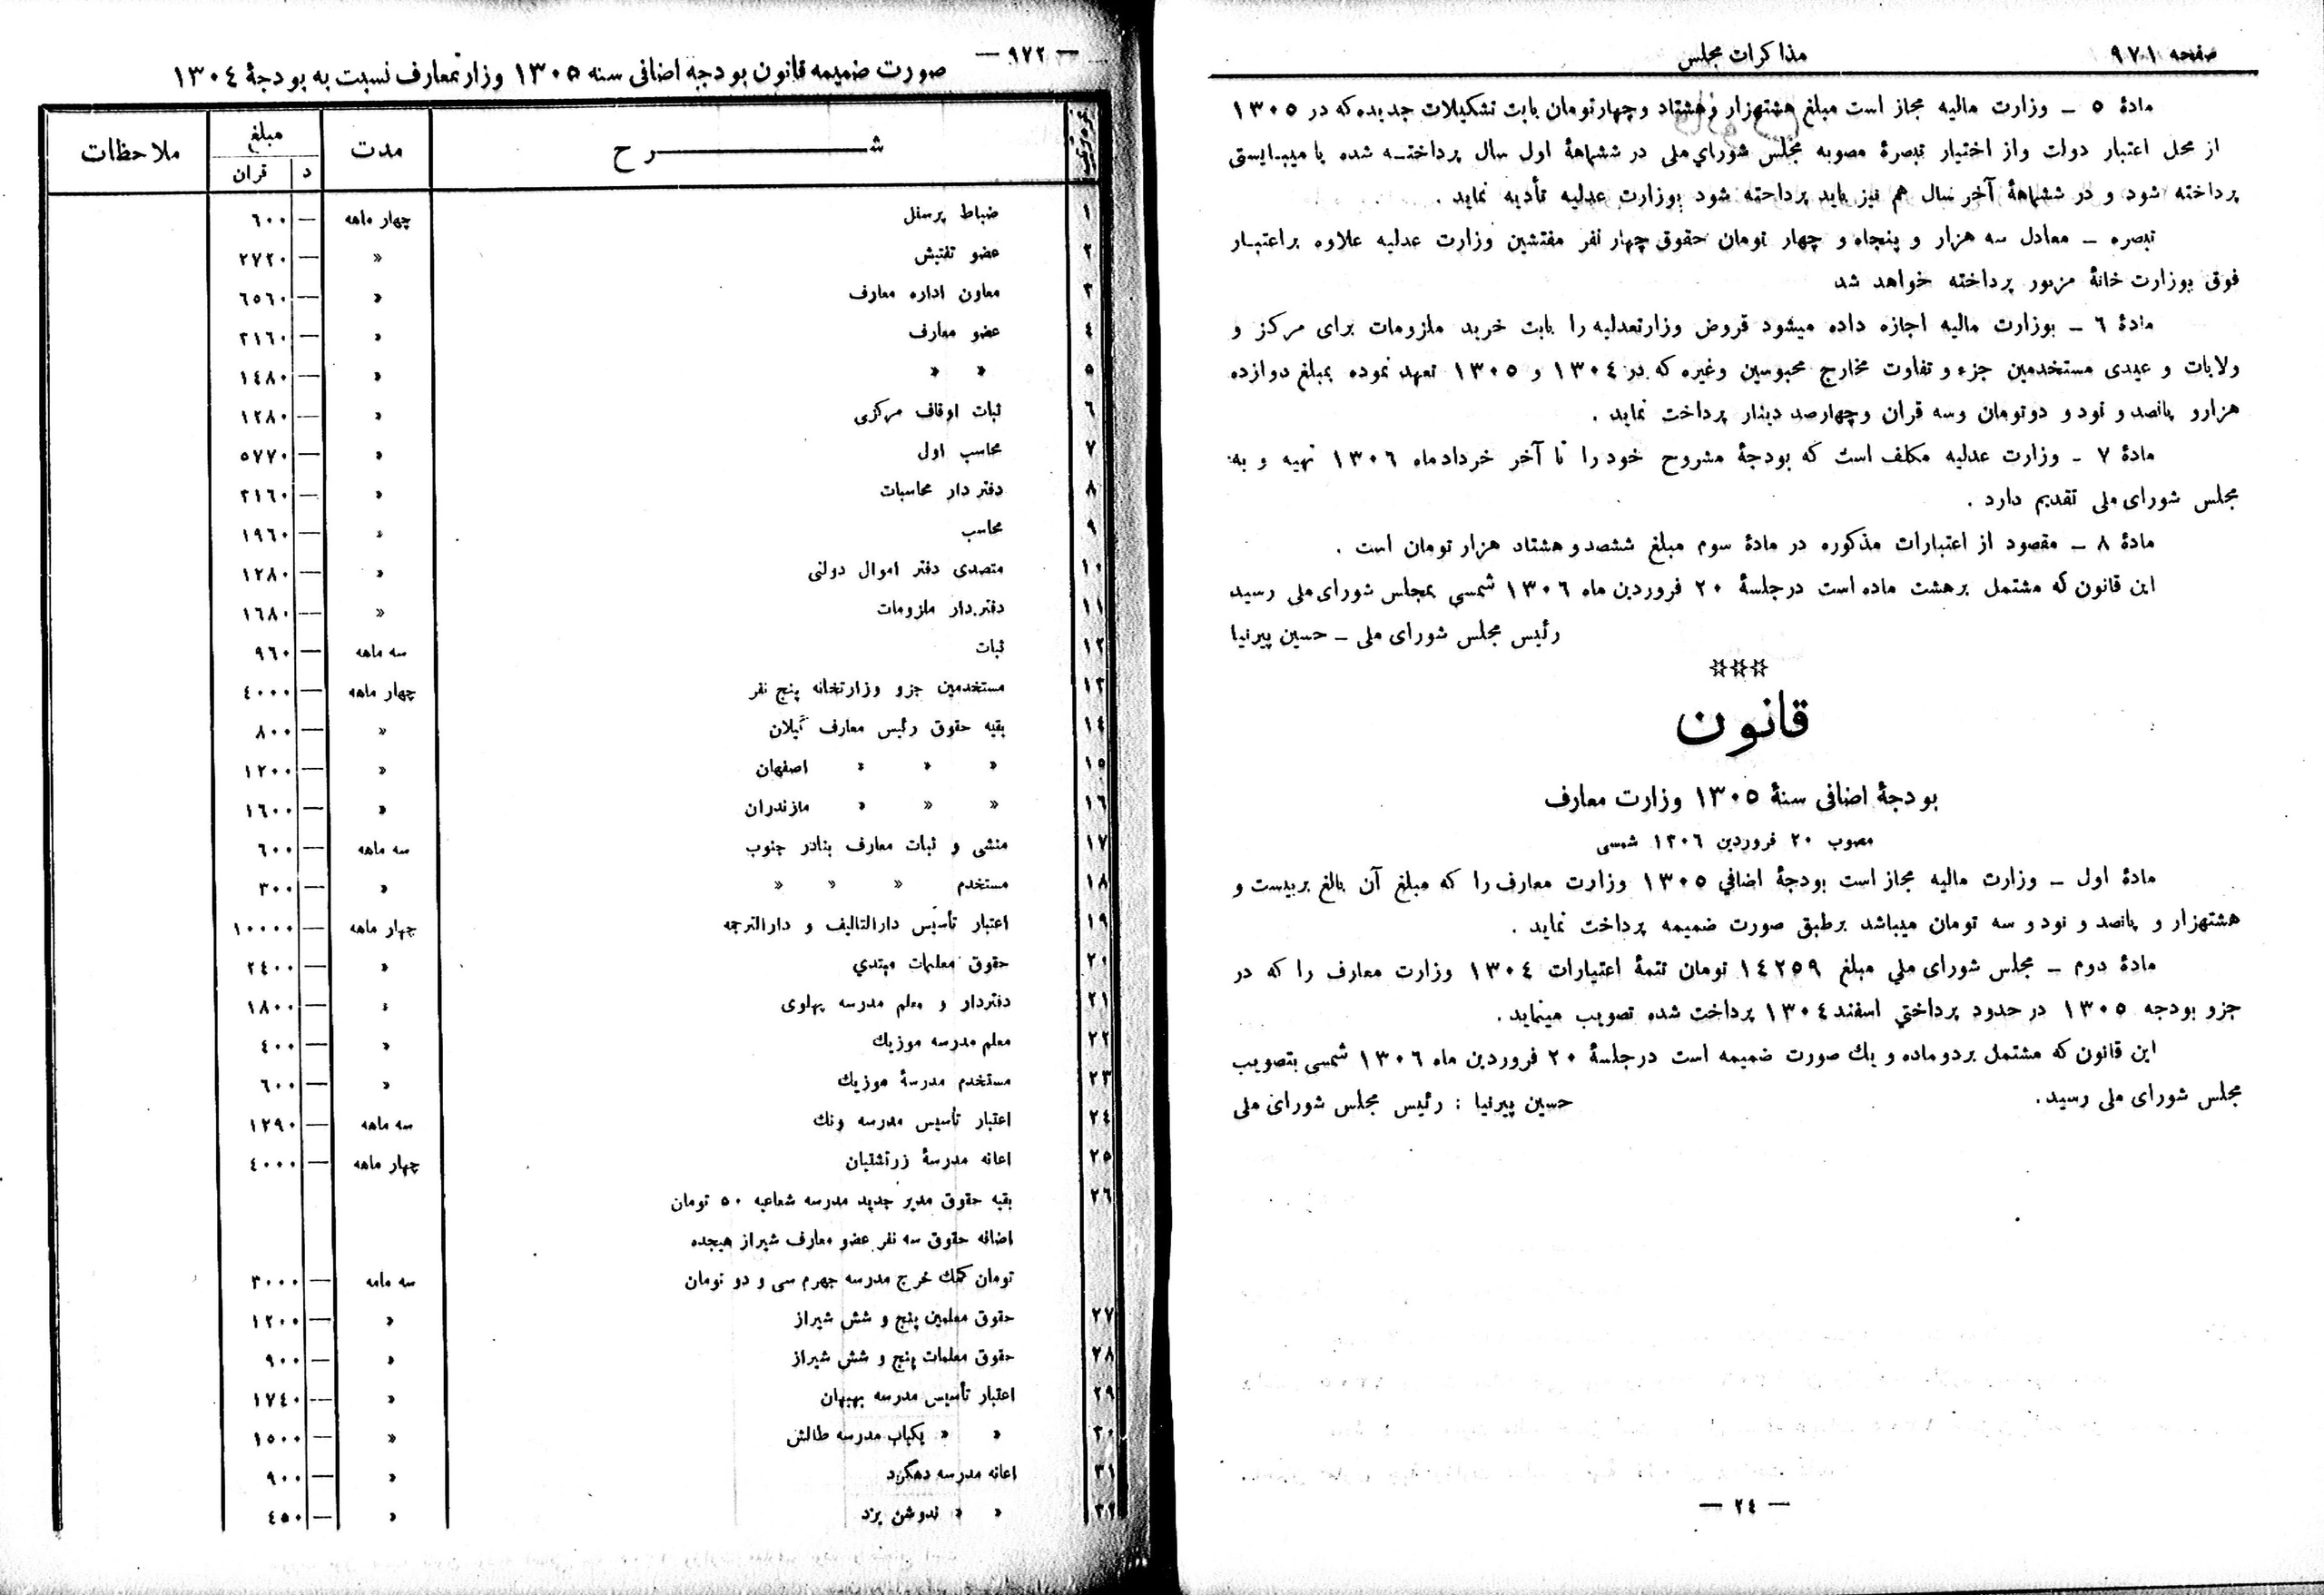 صفحه ۹۷۱
مذاکرات مجلس
مادۀ ۵ ـ وزارت مالیه مجاز است مبلغ هشتهزار و هشتاد و چهار تومان بابت تشکیلات جدیده که در ۱۳۰۵
از محل اعتبار دولت واز اختیار تبصرۀ مصوبه مجلس شورای ملی در ششماهۀ اول سال پرداختـه شده یا میبـایستی
پرداخته شود و در ششماهۀ آخر سال هم نیز باید پرداخته شود بوزارت عدلیه تأدیه نماید .
تبصره ـ معادل سه هزار و پنجاه و چهار تومان حقوق چهار نفر مفتشین وزارت عدلیه علاوه براعتبـار
فوق بوزارت خانۀ مزبور پرداخته خواهد شد
مادۀ ٦ ـ بوزارت مالیه اجازه داده میشود قروض وزارتعدلیه را بابت خرید ملزومات برای مرکز و
ولایات و عیدی مستخدمین جزء و تفاوت مخارج محبوسین وغیره که در ۱۳۰٤ و ۱۳۰۵ تعهد نموده بمبلغ دوازده
هزارو پانصد و نود و دوتومان وسه قران وچهارصد دینار پرداخت نماید .
مادۀ ۷ ـ وزارت عدلیه مکلف است که بودجۀ مشروح خود را تا آخر خرداد ماه ۱۳۰٦ تهیه و به
مجلس شورای ملی تقدیم دارد .
مادۀ ۸ ـ مقصود از اعتبارات مذکوره در مادۀ سوم مبلغ ششصد و هشتاد هزار تومان است .
این قانون که مشتمل برهشت ماده است درجلسۀ ۲۰ فروردین ماه ۱۳۰٦ شمسی بمجلس شورای ملی رسید
رئیس مجلس شورای ملی ـ حسین پیرنیا
قانون
بودجۀ اضافی سنۀ ۱۳۰۵ وزارت معارف
مصوب ۲۰ فروردین ۱۳۰٦ شمسی
مادۀ اول ـ وزارت مالیه مجاز است بودجۀ اضافی ۱۳۰۵ وزارت معارف را که مبلغ آن بالغ بربیست و
هشتهزار و پانصد و نود و سه تومان میباشد برطبق صورت ضمیمه پرداخت نماید .
مادۀ دوم ـ مجلس شورای ملی مبلغ ۱٤۲۵۹ تومان تتمۀ اعتبارات ۱۳۰٤ وزارت معارف را که در
جزو بودجه ۱۳۰۵ در حدود پرداختی اسفند ۱۳۰٤ پرداخت شده تصویب مینماید .
این قانون که مشتمل بردوماده و یك صورت ضمیمه است درجلسۀ ۲۰ فروردین ماه ۱۳۰٦ شمسی بتصویب
مجلس شورای ملی رسید . حسین پیرنیا : رئیس مجلس شورای ملی
— ۲٤ —
— ۹۷۲ —
صورت ضمیمه قانون بودجه اضافی سنه ۱۳۰۵ وزارتمعارف نسبت به بودجۀ ۱۳۰٤
شـــرح مدت مبلغ ملاحظات
د قران
۱ ضباط پرسنل چهار ماهه — ٦۰۰
۲ عضو تفتیش » — ۲۷۲۰
۳ معاون اداره معارف » — ٦۵٦۰
٤ عضو معارف » — ۲۱٦۰
۵ » » » — ۱٤۸۰
٦ ثبات اوقاف مرکزی » — ۱۲۸۰
۷ محاسب اول » — ۵۷۷۰
۸ دفتر دار محاسبات » — ۲۱٦۰
۹ محاسب » — ۱۹٦۰
۱۰ متصدی دفتر اموال دولتی » — ۱۲۸۰
۱۱ دفتردار ملزومات » — ۱٦۸۰
۱۲ ثبات سه ماهه — ۹٦۰
۱۳ مستخدمین جزو وزارتخانه پنج نفر چهار ماهه — ٤۰۰۰
۱٤ بقیه حقوق رئیس معارف گیلان » — ۸۰۰
۱۵ » » » اصفهان » — ۱۲۰۰
۱٦ » » » مازندران » — ۱٦۰۰
۱۷ منشی و ثبات معارف بنادر جنوب سه ماهه — ٦۰۰
۱۸ مستخدم » » » » — ۳۰۰
۱۹ اعتبار تأسیس دارالتالیف و دارالترجمه چهار ماهه — ۱۰۰۰۰
۲۰ حقوق معلمات مبتدی » — ۲٤۰۰
۲۱ دفتردار و معلم مدرسه پهلوی » — ۱۸۰۰
۲۲ معلم مدرسه موزیك » — ٤۰۰
۲۳ مستخدم مدرسۀ موزیك » — ٦۰۰
۲٤ اعتبار تأسیس مدرسه ونك سه ماهه — ۱۲۹۰
۲۵ اعانه مدرسۀ زرتشتیان چهار ماهه — ٤۰۰۰
۲٦ بقیه حقوق مدیر جدید مدرسه شعاعیه ۵۰ تومان
اضافه حقوق سه نفر عضو معارف شیراز هیجده
تومان کمك خرج مدرسه جهرم سی و دو تومان سه ماهه — ۳۰۰۰
۲۷ حقوق معلمین پنج و شش شیراز » — ۱۲۰۰
۲۸ حقوق معلمات پنج و شش شیراز » — ۹۰۰
۲۹ اعتبار تأسیس مدرسه بهبهان » — ۱۷٤۰
۳۰ » » یکباب مدرسه طالش » — ۱۵۰۰
۳۱ اعانه مدرسه دهگرد » — ۹۰۰
۳۲ » » ندوشن یزد » — ٤۵۰